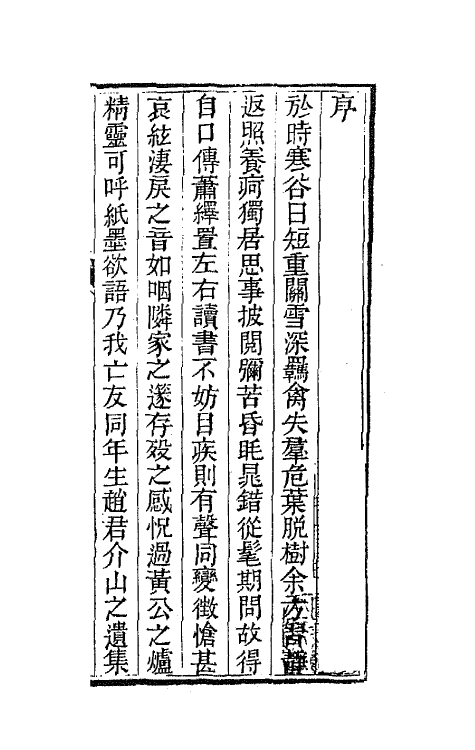 序
於時寒谷日短重關雪深羈禽失羣危葉脫樹余方
返照養疴獨居思事披閱彌苦昏眊晁錯從髦期問故得
自口傳蕭繹置左右讀書不妨目疾則有聲同變徵愴甚
哀絃淒戾之音如咽隣家之篴存歿之感怳過黃公之爐
精靈可呼紙墨欲語乃我亡友同年生趙君介山之遺集